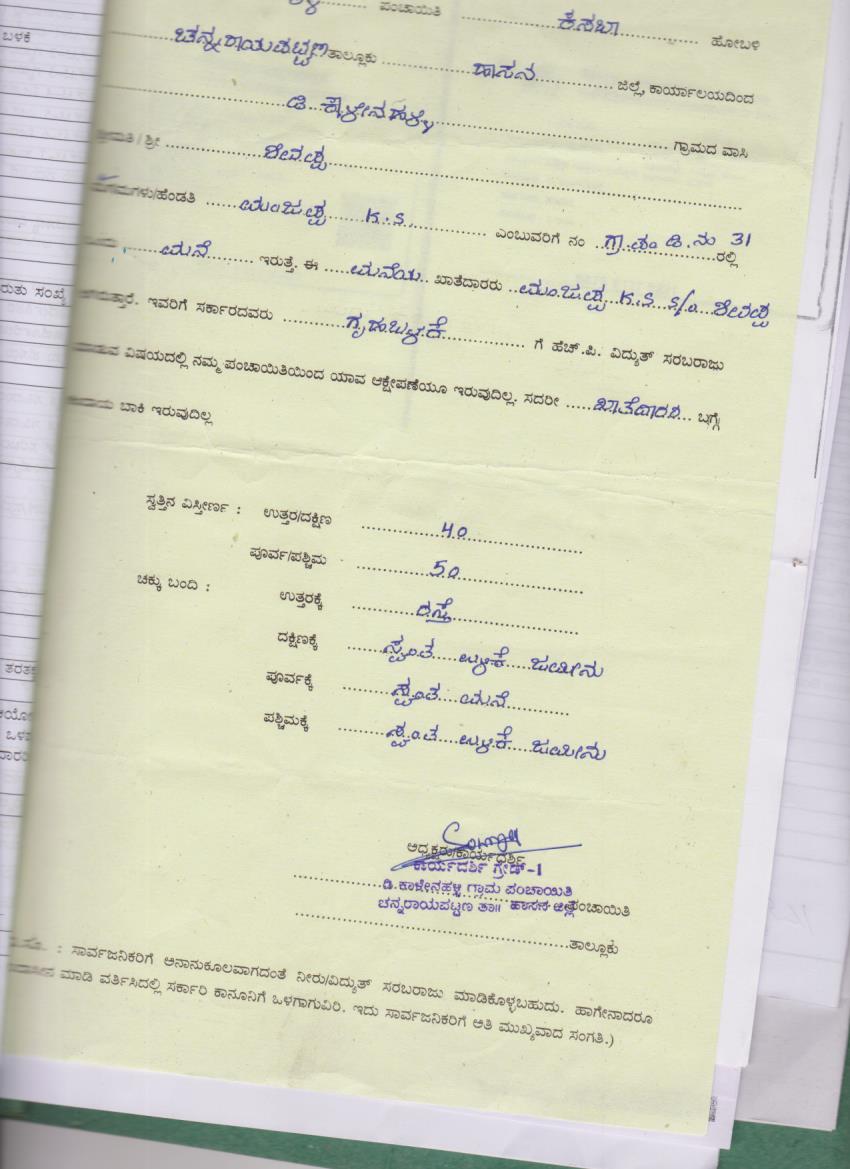 ಪಂಚಾಯಿತಿ ಕಸಬಾ ಹೋಬಳಿ
ಬಳಕೆ
ಚನ್ನರಾಯಪಟ್ಟಣ ತಾಲ್ಲೂಕು ಹಾಸನ ಜಿಲ್ಲೆ, ಕಾರ್ಯಾಲಯದಿಂದ
ಡಿ. ಕಾಳೇನಹಳ್ಳಿ ಗ್ರಾಮದ ವಾಸಿ
ಶ್ರೀಮತಿ / ಶ್ರೀ ಶಿವಪ್ಪ
ಮಗ/ಮಗಳು/ಹೆಂಡತಿ ಮಂಜಪ್ಪ K.S. ಎಂಬುವರಿಗೆ ನಂ ಗ್ರಾ.ಪಂ ಡಿ.ನಂ 31 ರಲ್ಲಿ
ಮನೆ ಇರುತ್ತೆ. ಈ ಮನೆಯ ಖಾತೆದಾರರು ಮಂಜಪ್ಪ K.S. S/o ಶಿವಪ್ಪ
ಆಗಿರುತ್ತಾರೆ. ಇವರಿಗೆ ಸರ್ಕಾರದವರು ಗೃಹಬಳಕೆ ಗೆ ಹೆಚ್.ಪಿ. ವಿದ್ಯುತ್ ಸರಬರಾಜು
ಮಾಡುವ ವಿಷಯದಲ್ಲಿ ನಮ್ಮ ಪಂಚಾಯಿತಿಯಿಂದ ಯಾವ ಆಕ್ಷೇಪಣೆಯೂ ಇರುವುದಿಲ್ಲ. ಸದರೀ ಖಾತೆದಾರರ ಬಗ್ಗೆ
ಕಂದಾಯ ಬಾಕಿ ಇರುವುದಿಲ್ಲ
ಸ್ವತ್ತಿನ ವಿಸ್ತೀರ್ಣ : ಉತ್ತರ/ದಕ್ಷಿಣ 40
ಪೂರ್ವ/ಪಶ್ಚಿಮ 50
ಚಕ್ಕು ಬಂದಿ : ಉತ್ತರಕ್ಕೆ ರಸ್ತೆ
ದಕ್ಷಿಣಕ್ಕೆ ಸ್ವಂತ ಉಳಿಕೆ ಜಮೀನು
ಪೂರ್ವಕ್ಕೆ ಸ್ವಂತ ಮನೆ
ಪಶ್ಚಿಮಕ್ಕೆ ಸ್ವಂತ ಉಳಿಕೆ ಜಮೀನು
ಅಧ್ಯಕ್ಷರು/ಕಾರ್ಯದರ್ಶಿ
ಕಾರ್ಯದರ್ಶಿ ಗ್ರೇಡ್-1
ಡಿ.ಕಾಳೇನಹಳ್ಳಿ ಗ್ರಾಮ ಪಂಚಾಯಿತಿ
ಚನ್ನರಾಯಪಟ್ಟಣ ತಾ॥ ಹಾಸನ ಜಿಲ್ಲೆ ಪಂಚಾಯಿತಿ
ತಾಲ್ಲೂಕು
: ಸಾರ್ವಜನಿಕರಿಗೆ ಅನಾನುಕೂಲವಾಗದಂತೆ ನೀರು/ವಿದ್ಯುತ್ ಸರಬರಾಜು ಮಾಡಿಕೊಳ್ಳಬಹುದು. ಹಾಗೇನಾದರೂ
ಮಾಡಿ ವರ್ತಿಸಿದಲ್ಲಿ ಸರ್ಕಾರಿ ಕಾನೂನಿಗೆ ಒಳಗಾಗುವಿರಿ. ಇದು ಸಾರ್ವಜನಿಕರಿಗೆ ಅತಿ ಮುಖ್ಯವಾದ ಸಂಗತಿ.)